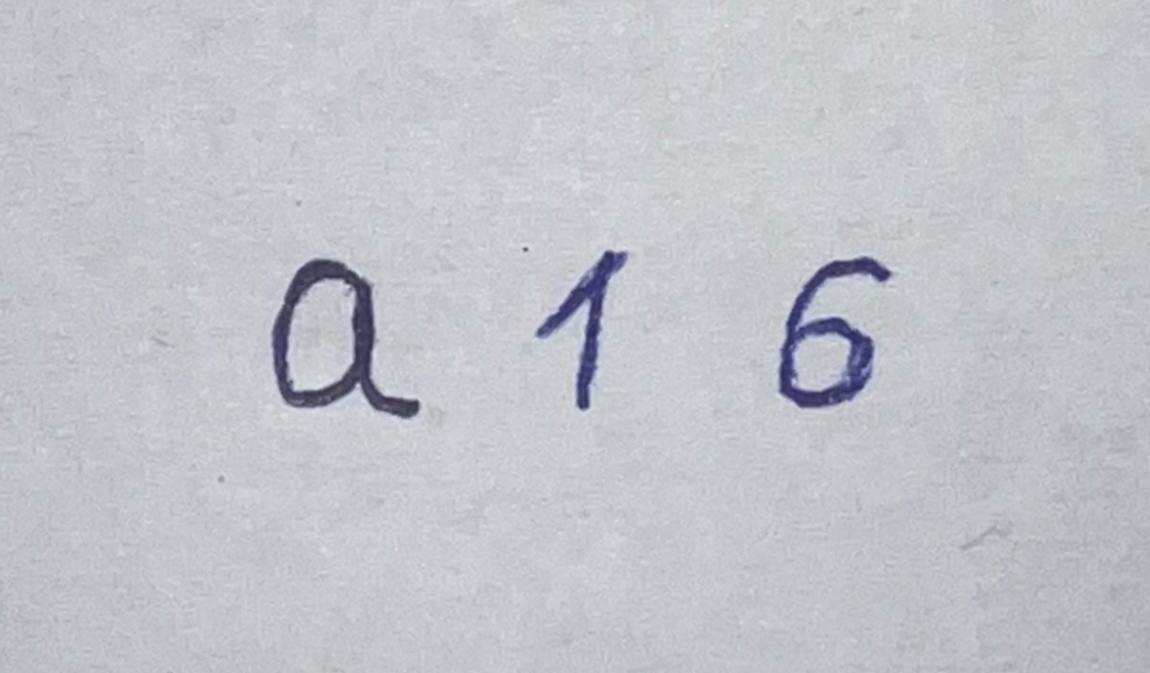 a 1 6